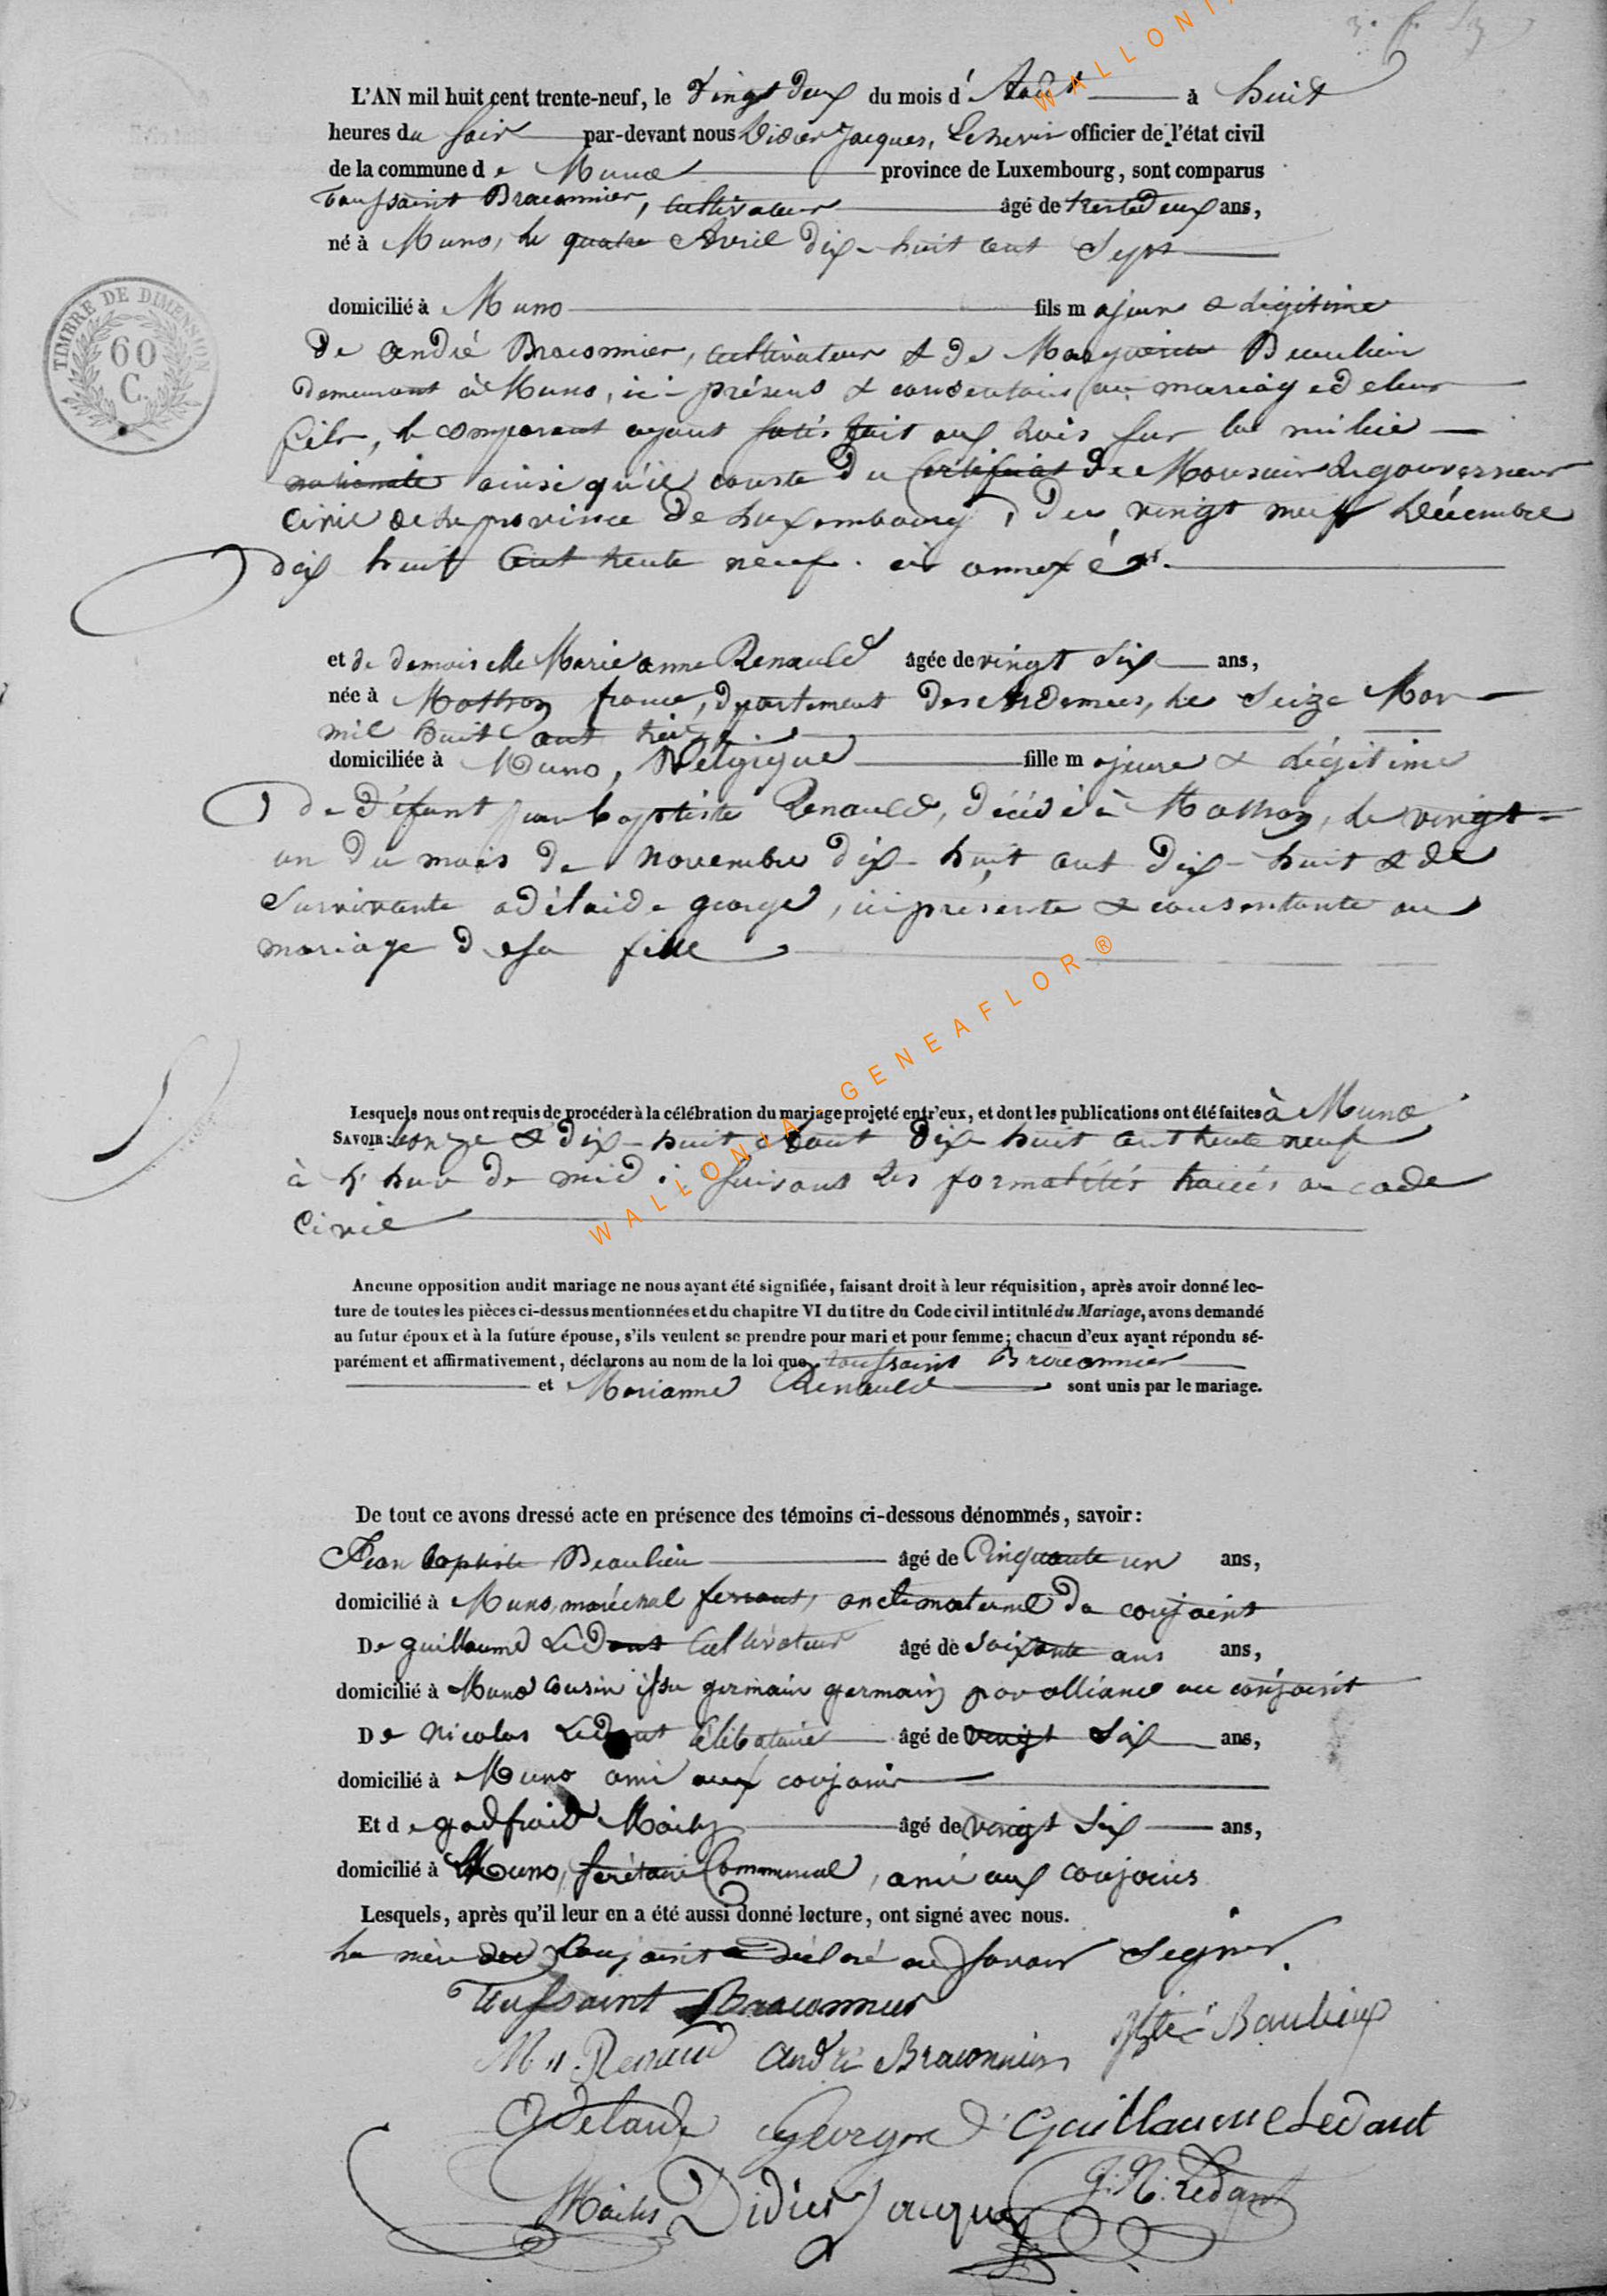 L'AN mil huit cent trente-neuf, le vingt deux du mois d'Août à huit
heures du soir par-devant nous Didier Jacques, officier de l'état civil
de la commune de Muno province de Luxembourg, sont comparus
Toussaint Braconnier, cultivateur âgé de trente deux ans,
né à Muno, le quatre Avril dix-huit cent Sept
TIMBRE DE DIMENSION
60
C.
domicilié à Muno fils majeur & légitime
de andré Braconnier, cultivateur & de Marguerite Beaulieu
demeurant à Muno, ici présens & consentans au mariage de leur
fils, le comparant ayant satisfait aux lois sur la milice
nationale ainsi qu'il conste du Certificat de Monsieur le gouverneur
civil de la province de Luxembourg, du vingt neuf Décembre
dix huit Cent trente neuf. ci annexé
et de demoiselle Marie anne Renauld âgée de vingt six ans,
née à Mathon france, département des Ardennes, le Seize Mars
mil huit cent treize.
domiciliée à Muno, Belgique fille majeure & légitime
de Défunt jean baptiste Renauld, décédé à Mathon, le vingt-
un du mois de novembre dix-huit cent dix-huit & de
Survivante adélaïde george, ici présente & consentante au
mariage de sa fille
Lesquels nous ont requis de procéder à la célébration du mariage projeté entr'eux, et dont les publications ont été faites à Muno
SAVOIR: le onze & dix-huit août dix huit cent trente neuf
à l'heure de midi. suivant les formalités tracées au code
Civil
Aucune opposition audit mariage ne nous ayant été signifiée, faisant droit à leur réquisition, après avoir donné lec-
ture de toutes les pièces ci-dessus mentionnées et du chapitre VI du titre du Code civil intitulé du Mariage, avons demandé
au futur époux et à la future épouse, s'ils veulent se prendre pour mari et pour femme; chacun d'eux ayant répondu sé-
parément et affirmativement, déclarons au nom de la loi que toussaint Braconnier
et Marianne Renauld sont unis par le mariage.
De tout ce avons dressé acte en présence des témoins ci-dessous dénommés, savoir:
Jean baptiste Beaulieu âgé de Cinquante un ans,
domicilié à Muno, maréchal ferrant, oncle maternel du conjoint
De guillaume Ledant Cultivateur âgé de soixante ans ans,
domicilié à Muno Cousin issu germain germain par alliance au conjoint
De Nicolas Ledant Célibataire âgé de vingt Six ans,
domicilié à Muno ami aux conjoins
Et de godfroid Maitz âgé de vingt Six ans,
domicilié à Muno, secrétaire Communal, ami aux conjoins
Lesquels, après qu'il leur en a été aussi donné lecture, ont signé avec nous.
La mère du Conjoint a déclaré ne savoir Signer.
Toussaint Braconnier
M. A. Renaud André Braconnier Bte Baulieux
Adelaïde George Guillaume Ledant
Didier Jacques J. N. Ledant
WALLONIA GENEAFLOR ®